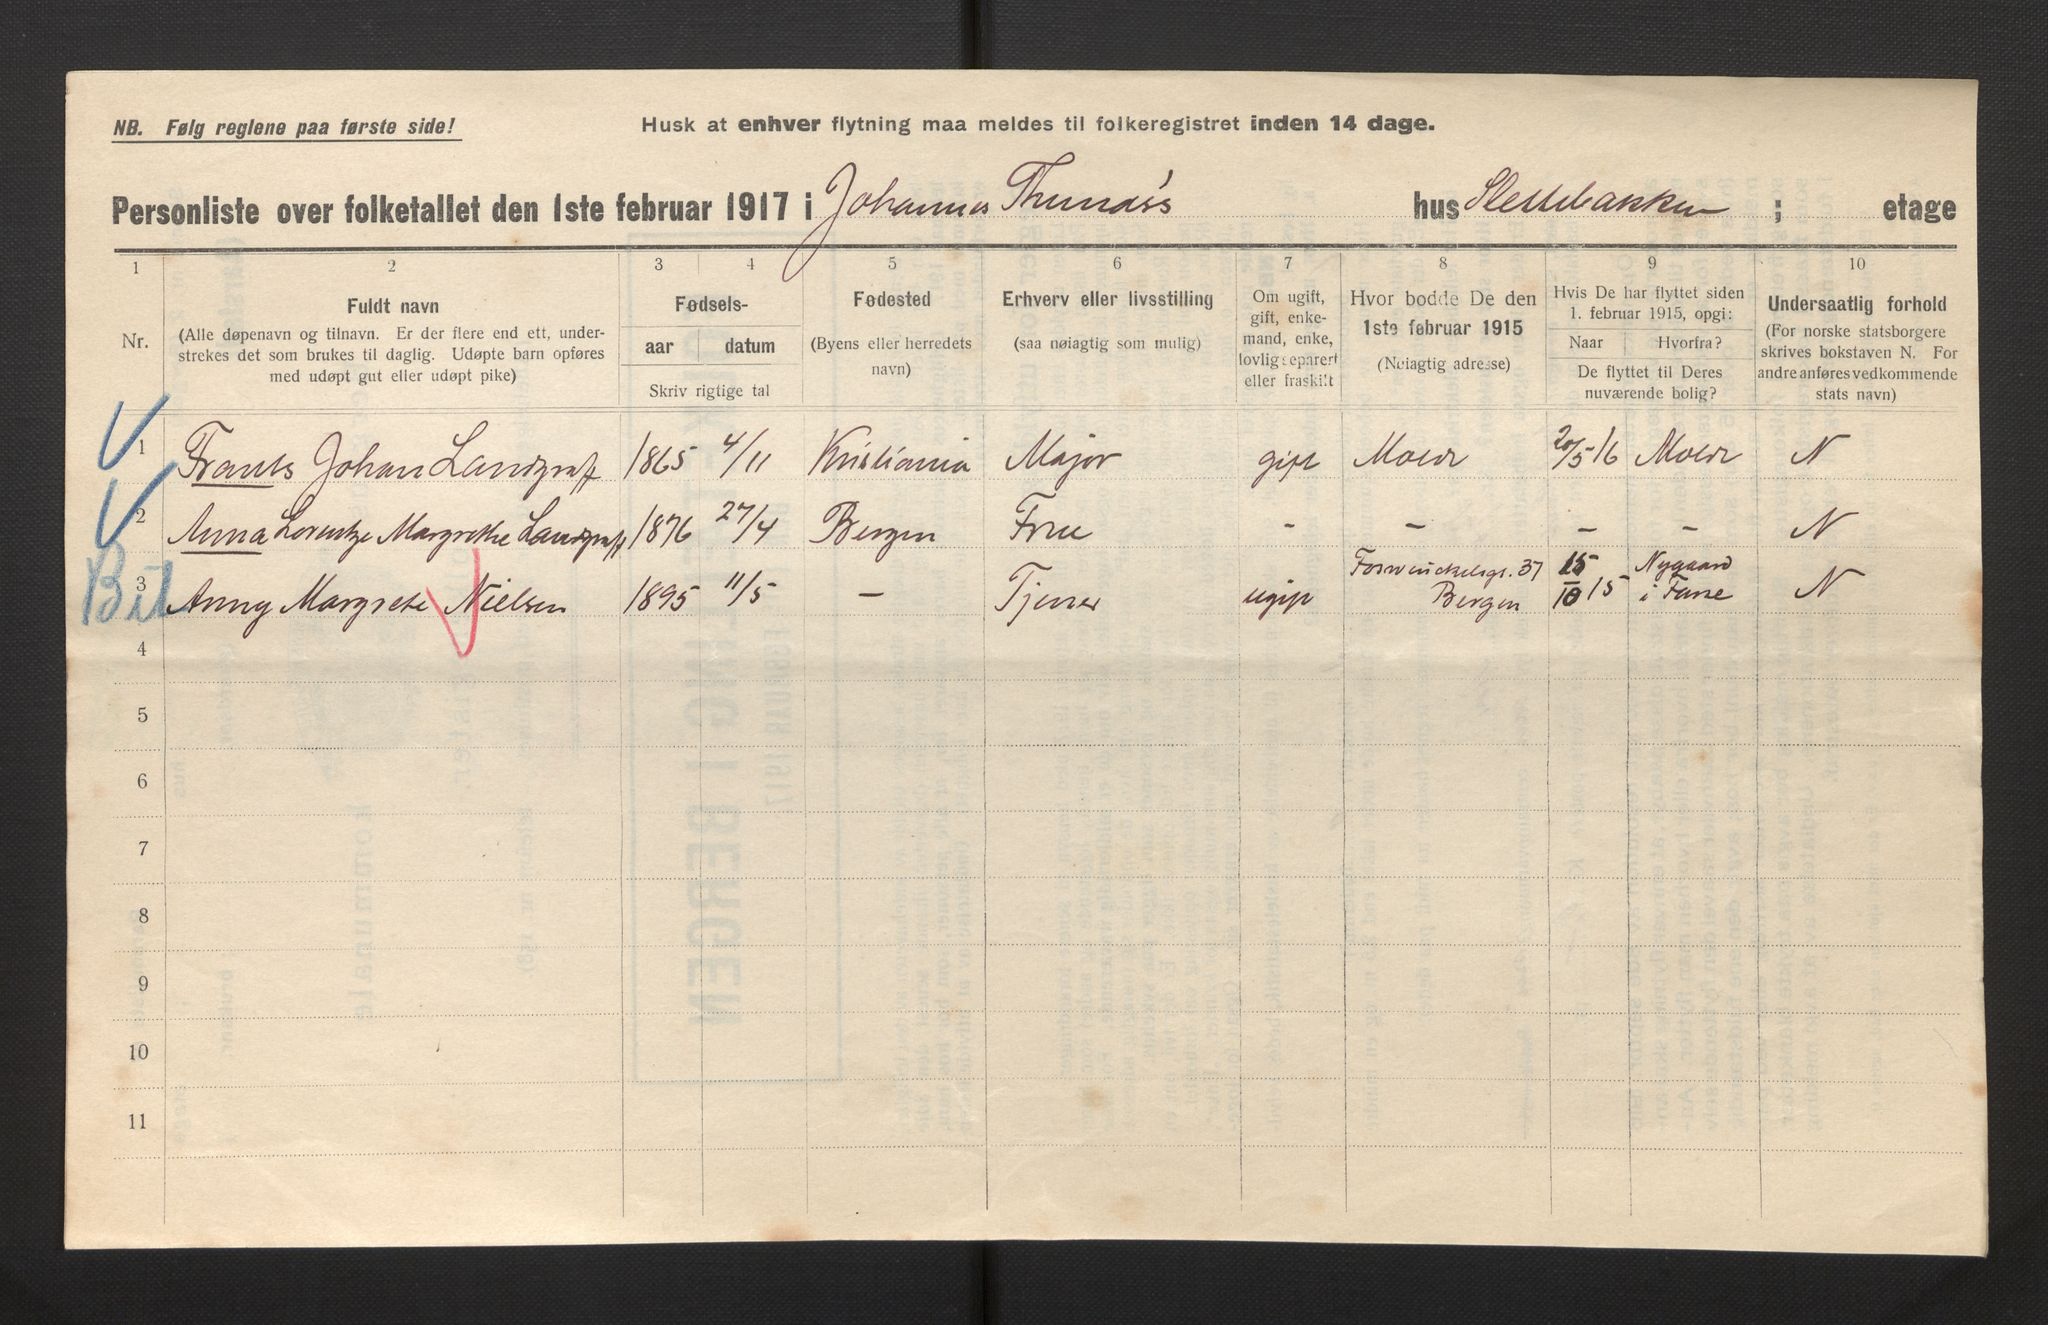 NB. Følg reglene paa første side!
Husk at enhver flytning maa meldes til folkeregistret inden 14 dage.
Personliste over folketallet den 1ste februar 1917 i Johannes hus Slettebakken ; etage
1 2 3 4 5 6 7 8 9 10
Nr.
Fuldt navn
(Alle døpenavn og tilnavn. Er der flere end ett, under-
strekes det som brukes til daglig. Udøpte barn opføres
med udøpt gut eller udøpt pike)
Fødsels-
aar datum
Skriv rigtige tal
Fødested
(Byens eller herredets
navn)
Erhverv eller livsstilling
(saa nøiagtig som mulig)
Om ugift,
gift, enke-
mand, enke,
lovlig separert
eller fraskilt
Hvor bodde De den
1ste februar 1915
(Nøiagtig adresse)
Hvis De har flyttet siden
1. februar 1915, opgi:
Naar Hvorfra?
De flyttet til Deres
nuværende bolig?
Undersaatlig forhold
(For norske statsborgere
skrives bokstaven N. For
andre anføres vedkommende
stats navn)
1 Frants Johan Landgraff 1865 4/11 Kristiania Major gift Molde 20/5 16 Molde N
2 Anna Lorentze Margrethe Landgraff 1876 27/4 Bergen Frue - - - - N
Bit 3 Anny Margrete Nielsen 1895 11/5 - Tjener ugift Fosswinckelsgt. 37 Bergen 15/10 15 Nygaard i Fane N
4
5
6
7
8
9
10
11